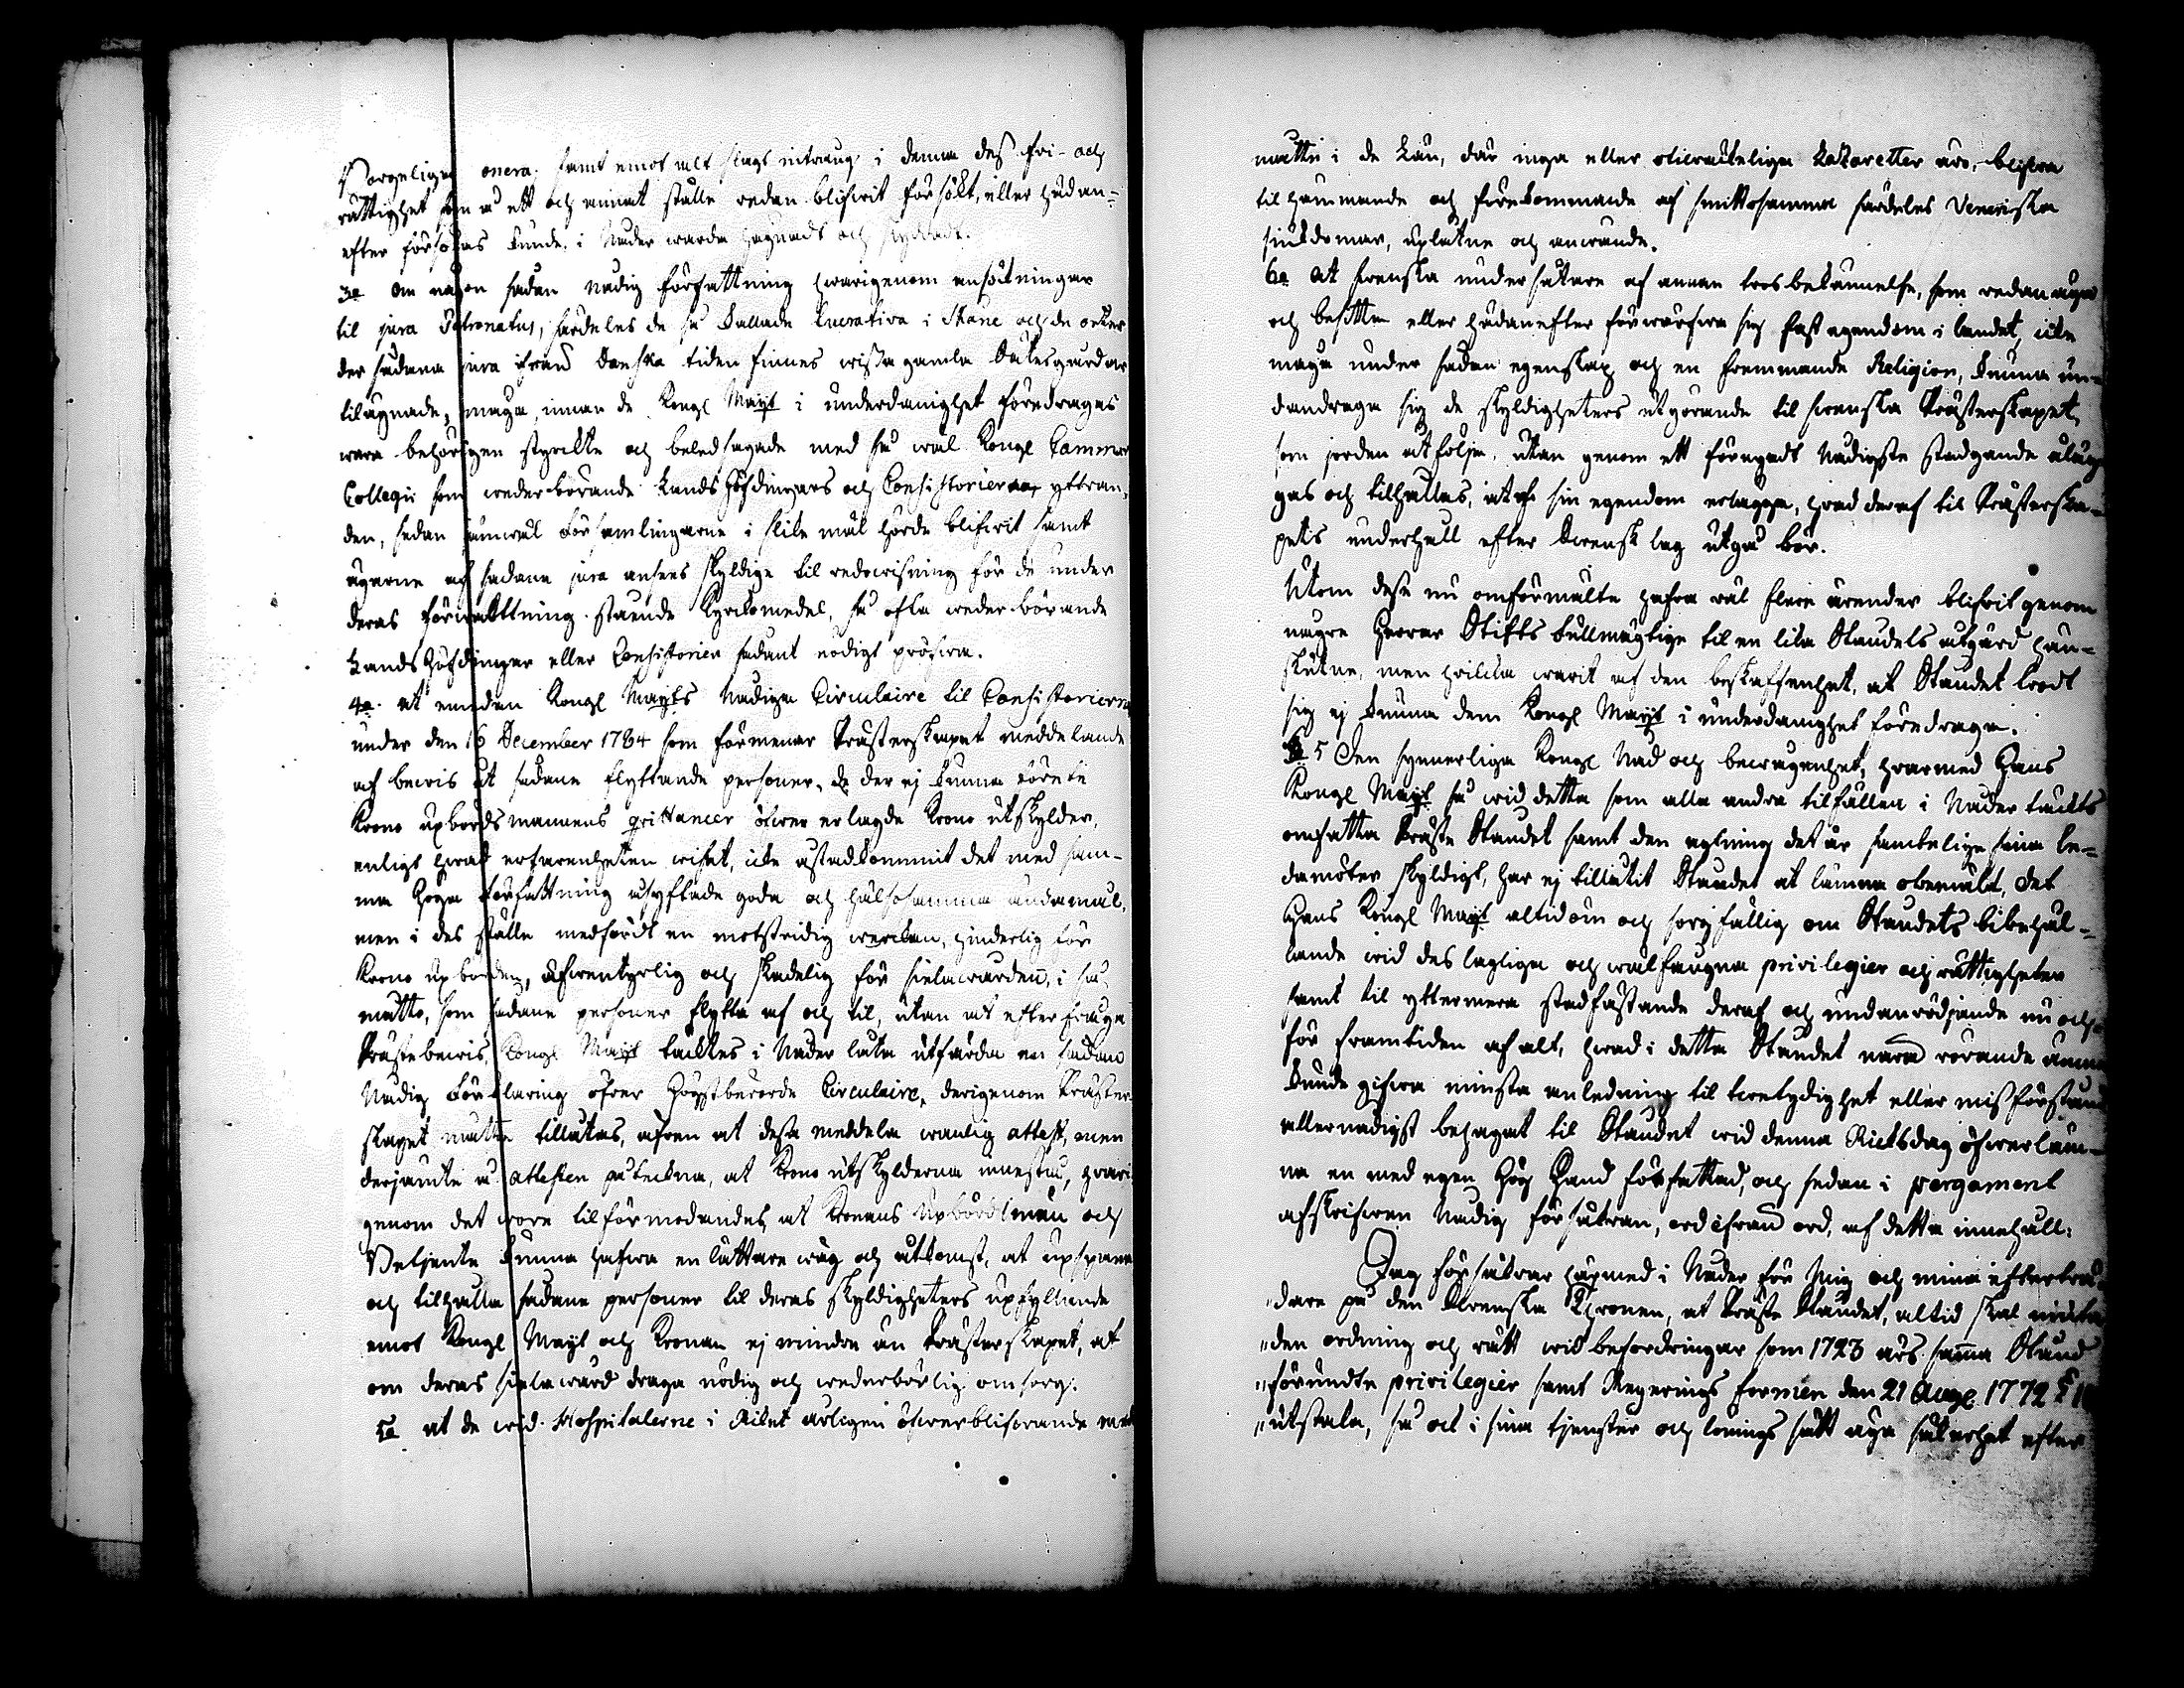 borgeliga onera. samt emot alt slags intrång i denna des fri- och
rättighet som å ett och annat ställe redan blifwit försökt, eller hädan-
efter försökas kunde, i Nåder warda hägnadt och skyddadt.
3o Om någon sådan nådig författning hwarigenom ansökningar
til jura Patronatus, särdeles de så kallade lucrativa i Skåne och de orter
der sådana jura ifrån Danska tiden finnes wissa gamla Sätesgårdar
tilägnade, måga, innan de Kongl Mayt i underdånighet föredragas
wara behörigen styrckte och beledsagade med så wäl Kongl Cammar
Collegii som wederbörande Landshöfdingars och Consistoriernas yttran-
den, sedan jämwäl Församlingarne i slike mål hörde blifwit samt
ägarne af sådana jura anses skyldige til redowisning för de under
deras förwaltning stående Kyrckomedel, så ofta wederbörande
Landshöfdingar eller Consistorier sådant nödigt pröfwa.
4o. at emedan Kongl Mayts Nådiga Circulaire til Consistorierna
under den 16 December 1784 som förmenar Prästerskapet meddelande
af bewis åt sådane flyttande personer, de der ej kunna förete
Krono upbördsmannens qvittancer öfwer erlagde Krono utskylder,
enligt hwad erfarenheten wisat, icke åstadkommit det med sam-
ma Höga Författning åsyftade goda och hälsosamma ändamål,
men i des ställe medfördt en motstridig werckan, hinderlig för
Krono upbörden, äfwentyrlig och skadelig för sielawården, i så
måtto, som sådane personer flytta af och til, utan at efterfråga
Prästebewis, Kongl Mayt täcktes i Nåder låta utfärda en sådan
Nådig Förklaring öfwer Högstberörde Circulaire, derigenom Präster-
skapet måtte tillåtas, äfwen at desa meddela wanlig attest, men
derjämte å attesten påteckna, at Krono utskylderna innestå, hwari-
genom det wore tilförmodandes at Kronans Upbördsmän och
Betjente kunna hafwa en lättare wäg och utkomst, at upspana
och tilhålla sådane personer til deras skyldigheters upfyllande
emot Kongl Mayt och Kronan ej mindre än Prästerskapet, at
om deras sielawård draga nödig och wederbörlig omsorg.
5o at de wid Hospitalerne i Riket årligen öfwerblifwande med
måtte i de Län, där inga eller otilräckeliga Lazaretter äro, blifwa
til hämmande och förekommande af smittosamma särdeles Veneriska
siukdomar, uplåtne och anwände.
6o At swenska undersåtare af annan trosbekännelse, som redan äga
och besitta eller hädanefter förwärfwa sig fast egendom i landet, icke
måga under sådan egenskap och en fremmande Religion, kunna un-
dandraga sig de skyldigheters utgörande til swenska Prästerskapet,
som jorden åtfölja, utan genom ett förnyadt Nådigste stadgande åläg-
gas och tilhållas, at af sin egendom erlägga, hwad deraf til Prästerska-
pets underhåll efter Swensk lag utgå bör.
Utom desse nu omförmälte hafwa wäl flere ärender blifwit genom
någre Herrar Stifts Fullmägtige til en lika Ståndets åtgärd hän-
skutne, men hwilka warit af den beskaffenhet, at Ståndet trodt
sig ej kunna dem Kongl Mayt i underdånighet föredraga.
§ 5 Den synnerliga Kongl Nåd och bewågenhet, hwarmed Hans
Kongl Mayt så wid detta som alla andra tilfällen i Nåder täckts
omfatta Präste Ståndet samt den agtning det är samtelige sina le-
damöter skyldigt, har ej tillåtit Ståndet at lämna obemält, det
Hans Kongl Mayt altid öm och sorgfällig om Ståndets bibehål-
lande wid des lagliga och wälfångna privilegier och rättigheter
samt til yttermera stadfästande deraf och undanrödjande nu och
för framtiden af alt, hwad i detta Ståndet nära rörande ämne
kunde gifwa minsta anledning til twetydighet eller missförstånd
allernådigst behagat til Ståndet wid denna Riksdag öfwerläm-
na en med egen Hög Hand författad, och sedan i pergament
afskrifwen Nådig försäkran, ord ifrån ord, af detta innehåll:
Jag försäkrar härmed i Nåder för Mig och mina efterträ-
"dare på den Swenska Thronen, at Präste Ståndet, altid skal niuta
"den ordning och rätt wid befordringar som 1723 års samma Stånd
"förundte privilegier samt Regerings formen den 21 Aug 1772 § 10
"utstaka, så ock i sina tjenster och lönings sätt äga säkerhet efter